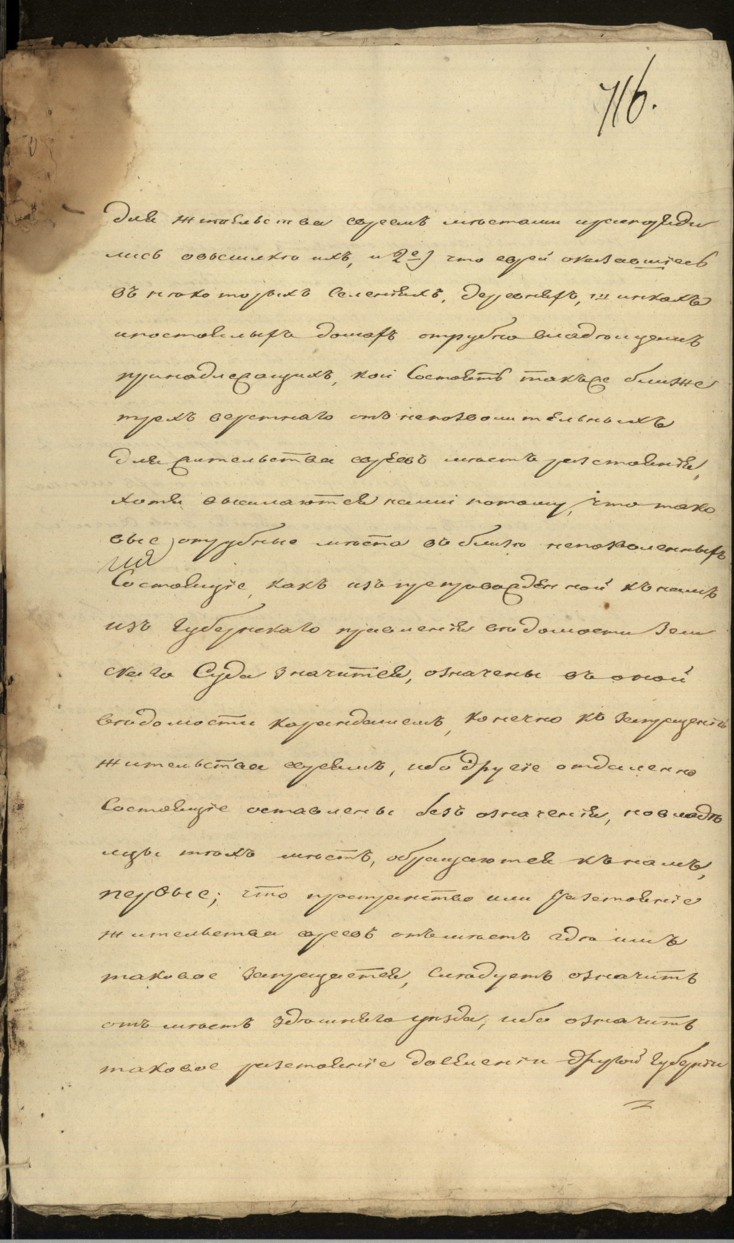 716.
для жительства евреямъ местами и распоряди
лись овысылке ихъ, и 2е) что еврей оказавшiесь
въ некоторыхъ селенiяхъ, деревняхъ, шинкахъ
и постоялыхъ домахъ отрубно владельцемъ
принадлежащихъ, кои состоятъ также ближе
трехъ верстнаго отъ непозволительныхъ
для жительства евреевъ местъ разстоянiя,
хотя высылаются нами потому, что тако
вые отрубные места въ близо непозволенныхъ
состоящiе, какъ изъ препровожденной къ намъ
изъ Губернскаго правленiя ведомости Зем
скаго Суда значится, означены въ оной
ведомости карандашемъ, конечно къ запрещенiю
жительства евреямъ, ибо другiе отдаленно
состоящiе оставлены безъ означенiя, но владе
лцы техъ местъ, обращаются къ намъ,
первые; что пространство или разстоянiе
жительства евреевъ отъ местъ где имъ
таковое запрещается, следуетъ означить
отъ местъ здешняго уезда, ибо означить
таковое разстоянiе довленiи другой Губернiи